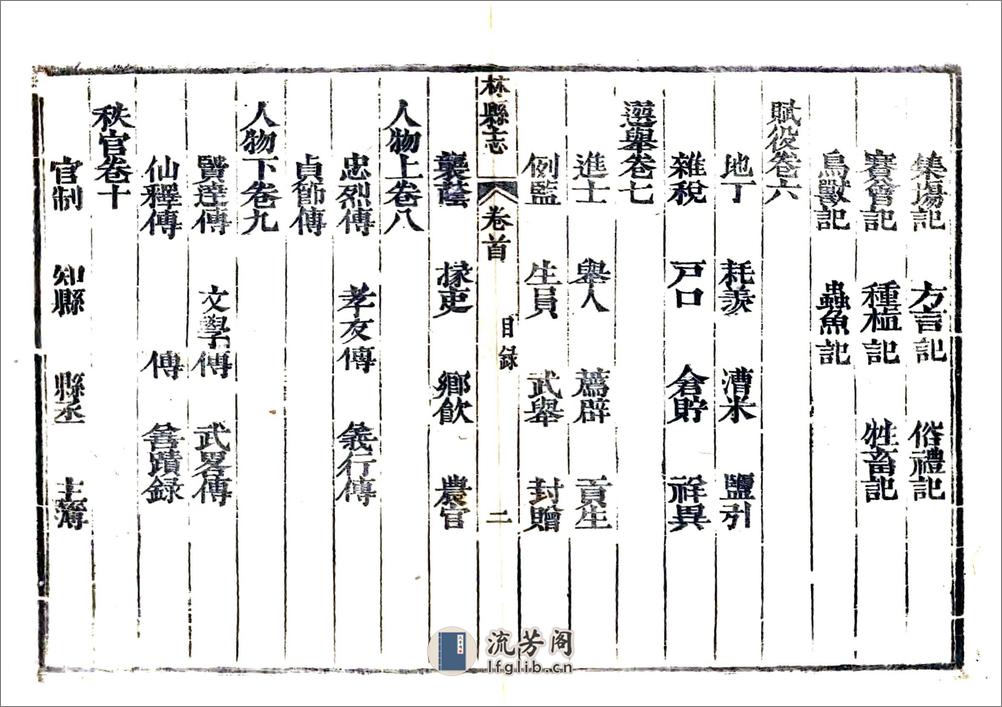 集場記 方言記 俗禮記
賽會記 種植記 牲畜記
鳥獸記 蟲魚記
賦役卷六
地丁 耗羨 漕米 鹽引
雜稅 戸口 倉貯 祥異
選舉卷七
進士 舉人 薦辟 貢生
例監 生員 武舉 封贈
林縣志 卷首 目録 二
襲蔭 掾吏 鄉飲 農官
人物上卷八
忠烈傳 孝友傳 義行傳
貞節傳
人物下卷九
賢達傳 文學傳 武畧傳
仙釋傳 傳 善蹟録
秩官卷十
官制 知縣 縣丞 主簿
流芳阁
lfglib.cn